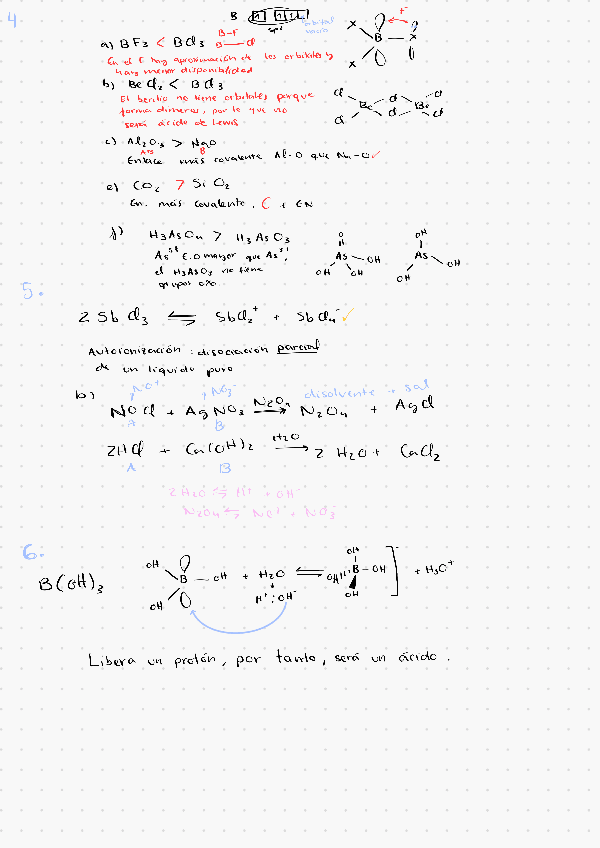 4
B
sp²
orbital
vacío
a) BF₃ < BCl₃
B-F
B—Cl
En el F hay aproximación de los orbitales y
hay menor disponibilidad
b) BeCl₂ < BCl₃
El berilio no tiene orbitales porque
forma dímeros, por lo que no
será ácido de Lewis
X
B — X
X
F
Cl Cl Cl
Be Be
Cl Cl Cl
c) Al₂O₃ > Na₂O
B
Enlace más covalente Al-O que Na-O ✓
e) CO₂ > SiO₂
En. más covalente, C + EN
f) H₃AsO₄ > H₃AsO₃
As⁵⁺ E.O mayor que As³⁺,
el H₃AsO₃ no tiene
grupos oxo.
O
As — OH
OH OH
OH
As
OH OH
5.
2 SbCl₃ ⇌ SbCl₂⁺ + SbCl₄⁻ ✓
Autoionización: disociación parcial
de un líquido puro
b) NO⁺ NO₃⁻ disolvente + sal
NOCl + AgNO₃ →N₂O₄ N₂O₄ + AgCl
A B
2HCl + Ca(OH)₂ →H₂O 2 H₂O + CaCl₂
A B
2H₂O ⇌ H⁺ + OH⁻
N₂O₄ ⇌ NO⁺ + NO₃⁻
6.
B(OH)₃
OH
B — OH + H₂O ⇌
OH
H⁺ : OH⁻
OH
OH B - OH
OH
+ H₃O⁺
Libera un protón, por tanto, será un ácido.